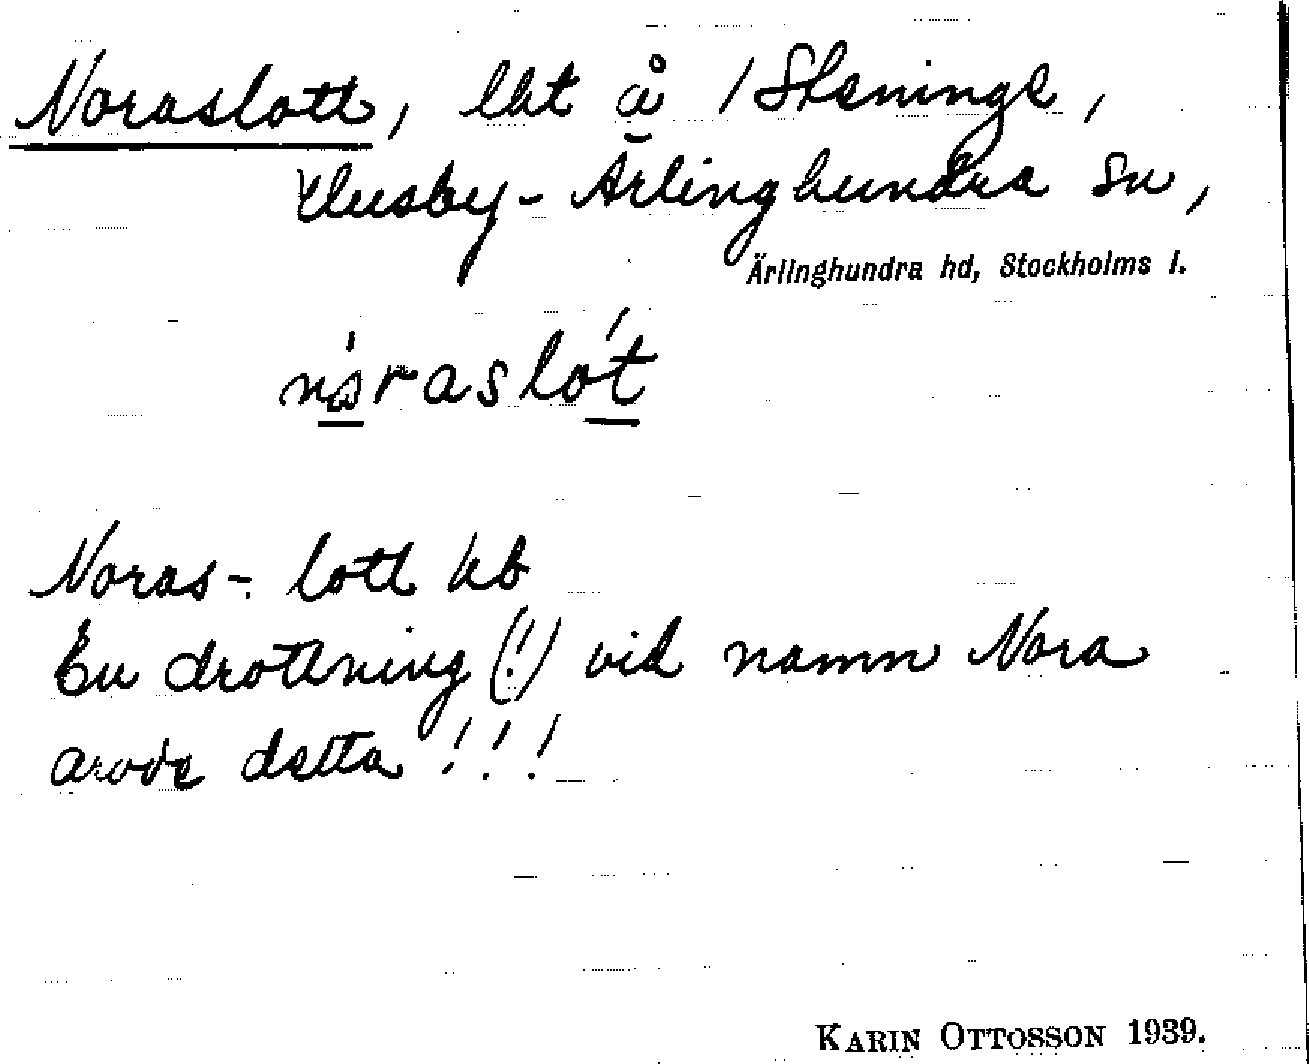 Noraslott, lht å /Steninge,
Husby-Ärlinghundra sn,
Ärlinghundra hd, Stockholms l.
nóraslót
Noras-: lott hb
En drottning (!) vid namn Nora
ärvde detta !!!
KARIN OTTOSSON 1939.